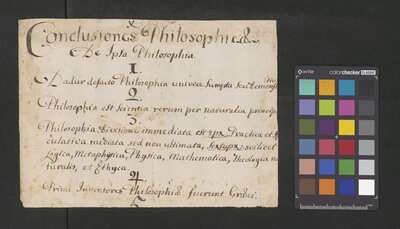 Conclusiones Philosophicæ
De Ipsa Philosophia
1.
Datur defacto Philosophia universe sumpta
2.
Philosophia est scientia rerum per naturalia principia
3.
Philosophia divisione immediata est Practica et
culativa mediata sed non ultimata, scilicet
Logica, Metaphysica, Physica, Mathematica, Theologia na
turalis, et Ethyca.
4.
Primi Inventores Philosophiæ fuerunt Græci.
colorchecker CLASSIC